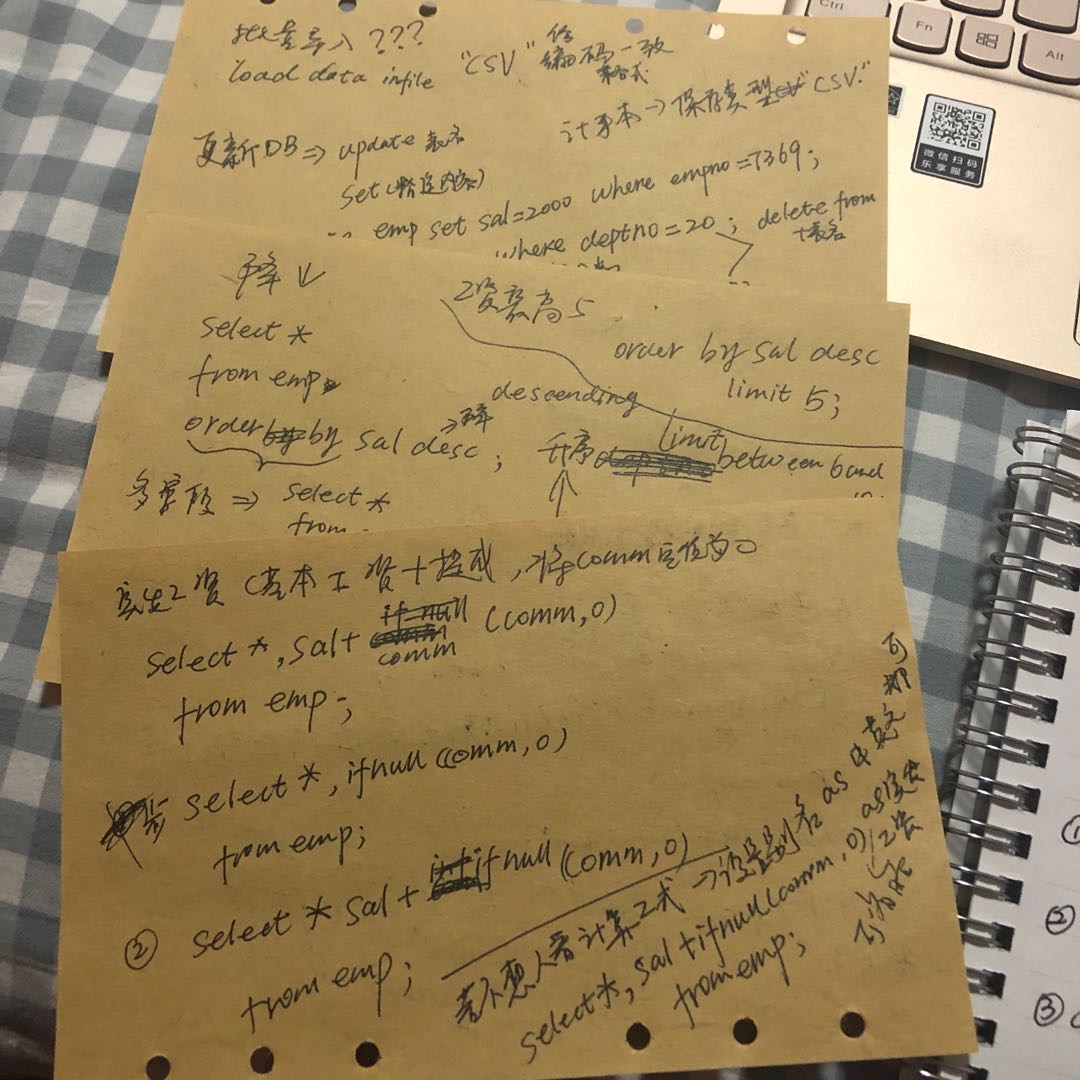 批量导入???
load data infile "CSV" 编码一致
格式
记事本→保存类型 "CSV."
更新DB⇒ update 表名
set
emp set sal=2000 where empno=7369;
where deptno=20; delete from
表名
降↓
select *
from emp
order by sal desc;
descending
工资最高5
order by sal desc
limit 5;
升序 limit between 6 and
多字段⇒ select *
from
实发工资(基本工资+提成,将comm定值为0
select *, sal+ comm (comm,0)
from emp;
select *, ifnull (comm,0)
from emp;
② select * sal + ifnull (comm,0)
from emp;
若不想人看计算工式→设置别名 as 中英文 可
select *, sal+ifnull(comm,0) as实发工资
from emp;
Ctrl
Fn
Alt
微信扫码
乐享服务
①
②
③